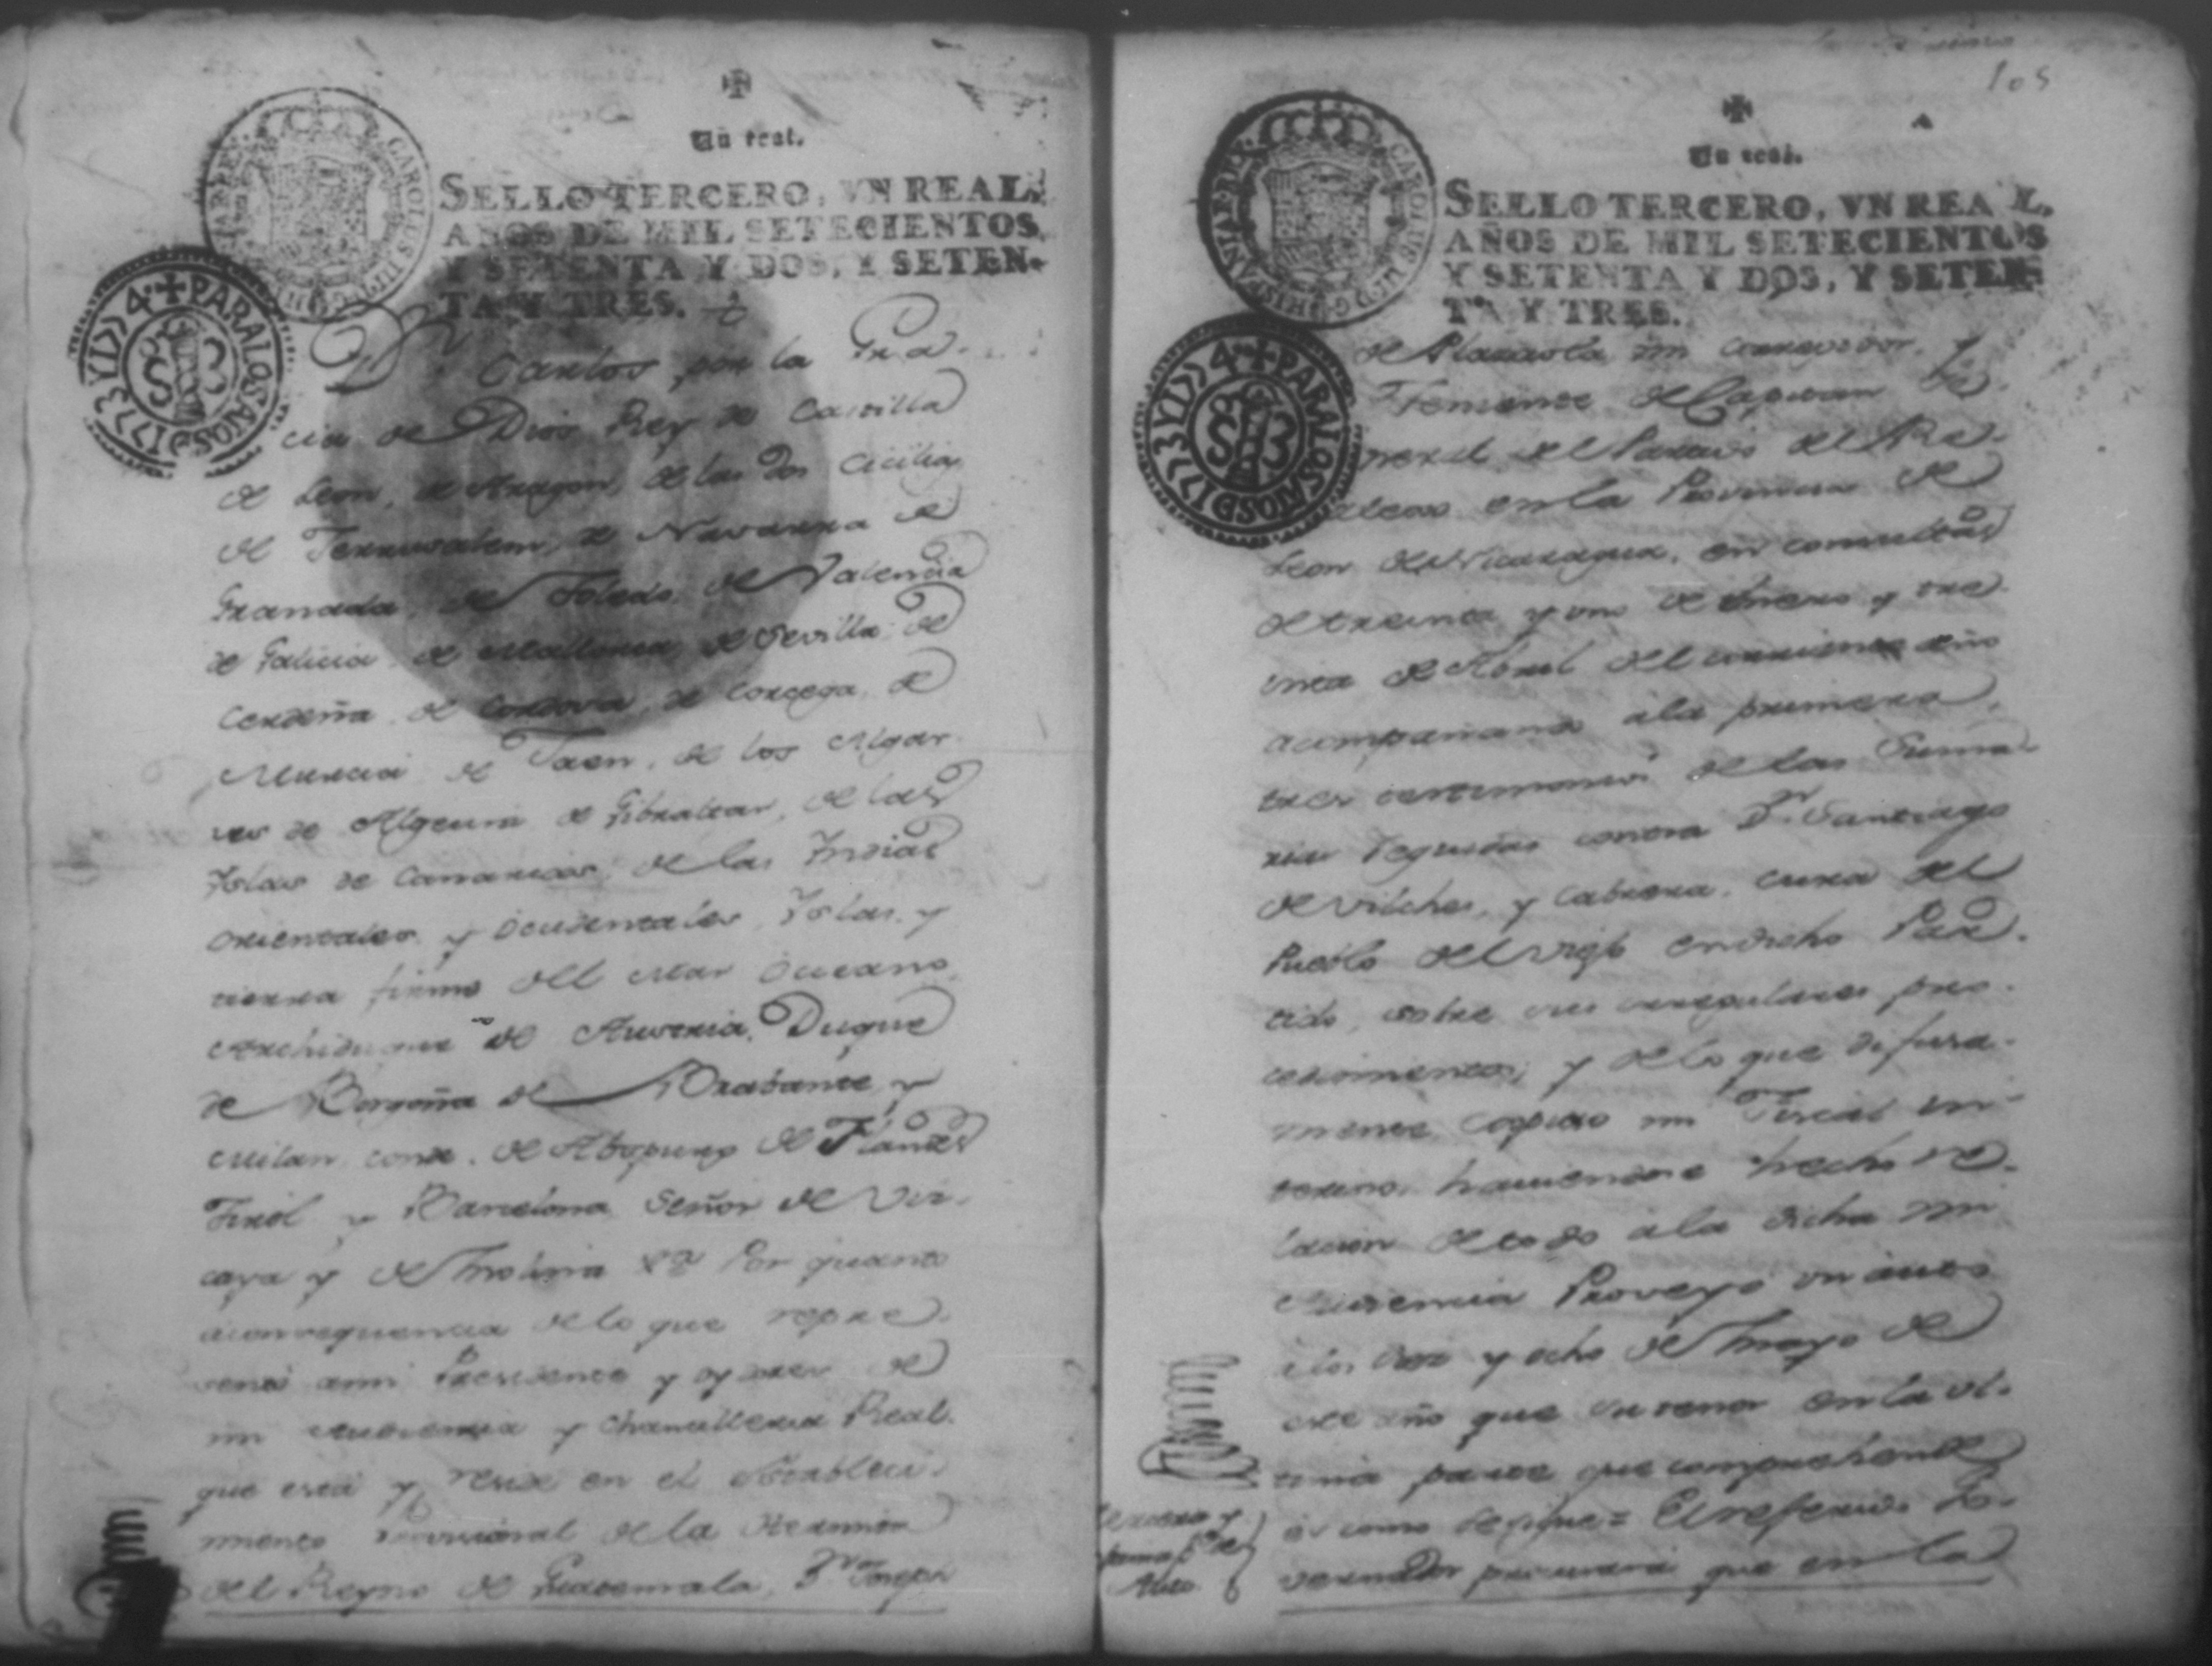 Un real.
SELLO TERCERO, VN REAL,
AÑOS DE MIL SETECIENTOS
Y SETENTA Y DOS, Y SETEN-
TA Y TRES.
CAROLUS III
✠PARA LOS AÑOS DE 1773 Y 1774
S 3
Dn Carlos por la Gra-
cia de Dios Rey de Castilla
de Leon, de Aragon, de las dos Cicilias
de Jerrusalem, de Navarra de
Granada, de Toledo, de Valencia
de Galicia, de Mallorca, de Sevilla, de
Cerdeña, de Cordova, de Corcega, de
Murcia de Jaen, de los Algar-
ves de Algecira de Gibraltar, de las
Yslas de Canarias, de las Yndias
Orientales y Occidentales, Yslas y
tierra firme del Mar Occeano
Archiduque de Austria, Duque
de Borgoña de Brabante y
Milan, conde de Abspurg de Flandes
Tirol y Barcelona, Señor de Vis-
caya y de Molina &a. Por quanto
a consequencia de lo que repre-
sentó a mi Presidente y oydores de
mi Audiencia y Chancilleria Real
que está y reside en el Estableci-
miento Provicional de la Hermita
del Reyno de Guatemala, Dn Joseph
105
Un real.
SELLO TERCERO, VN REAL,
AÑOS DE MIL SETECIENTOS
Y SETENTA Y DOS, Y SETEN-
TA Y TRES.
CAROLUS III D G HISPANIAR REX
✠PARA LOS AÑOS DE 1773 Y 1774
S 3
de Plazaola mi corregidor y
Theniente de Capitan Ge-
neral del Partido del Rea-
lexo en la Provincia de
Leon de Nicaragua, en consultas
de treinta y uno de Enero y tre-
inta de Abril del corriente año
acompañando a la primera,
tres testimonios de las suma-
rias seguidas contra Dn Santiago
de Vilches, y Cabrera, cura del
Pueblo del Viejo en dicho Par-
tido, sobre sus irregulares pro-
cedimientos; y de lo que difusa-
mente expuso mi Fiscal in-
terino, haviendose hecho re-
lacion de todo a la dicha mi
Audiencia Proveyó un auto
a los diez y ocho de Mayo de
este año que su tenor en la ul-
tima parte que comprehende
es como se sigue = El referido Go-
vernador procurará que en la
Auto